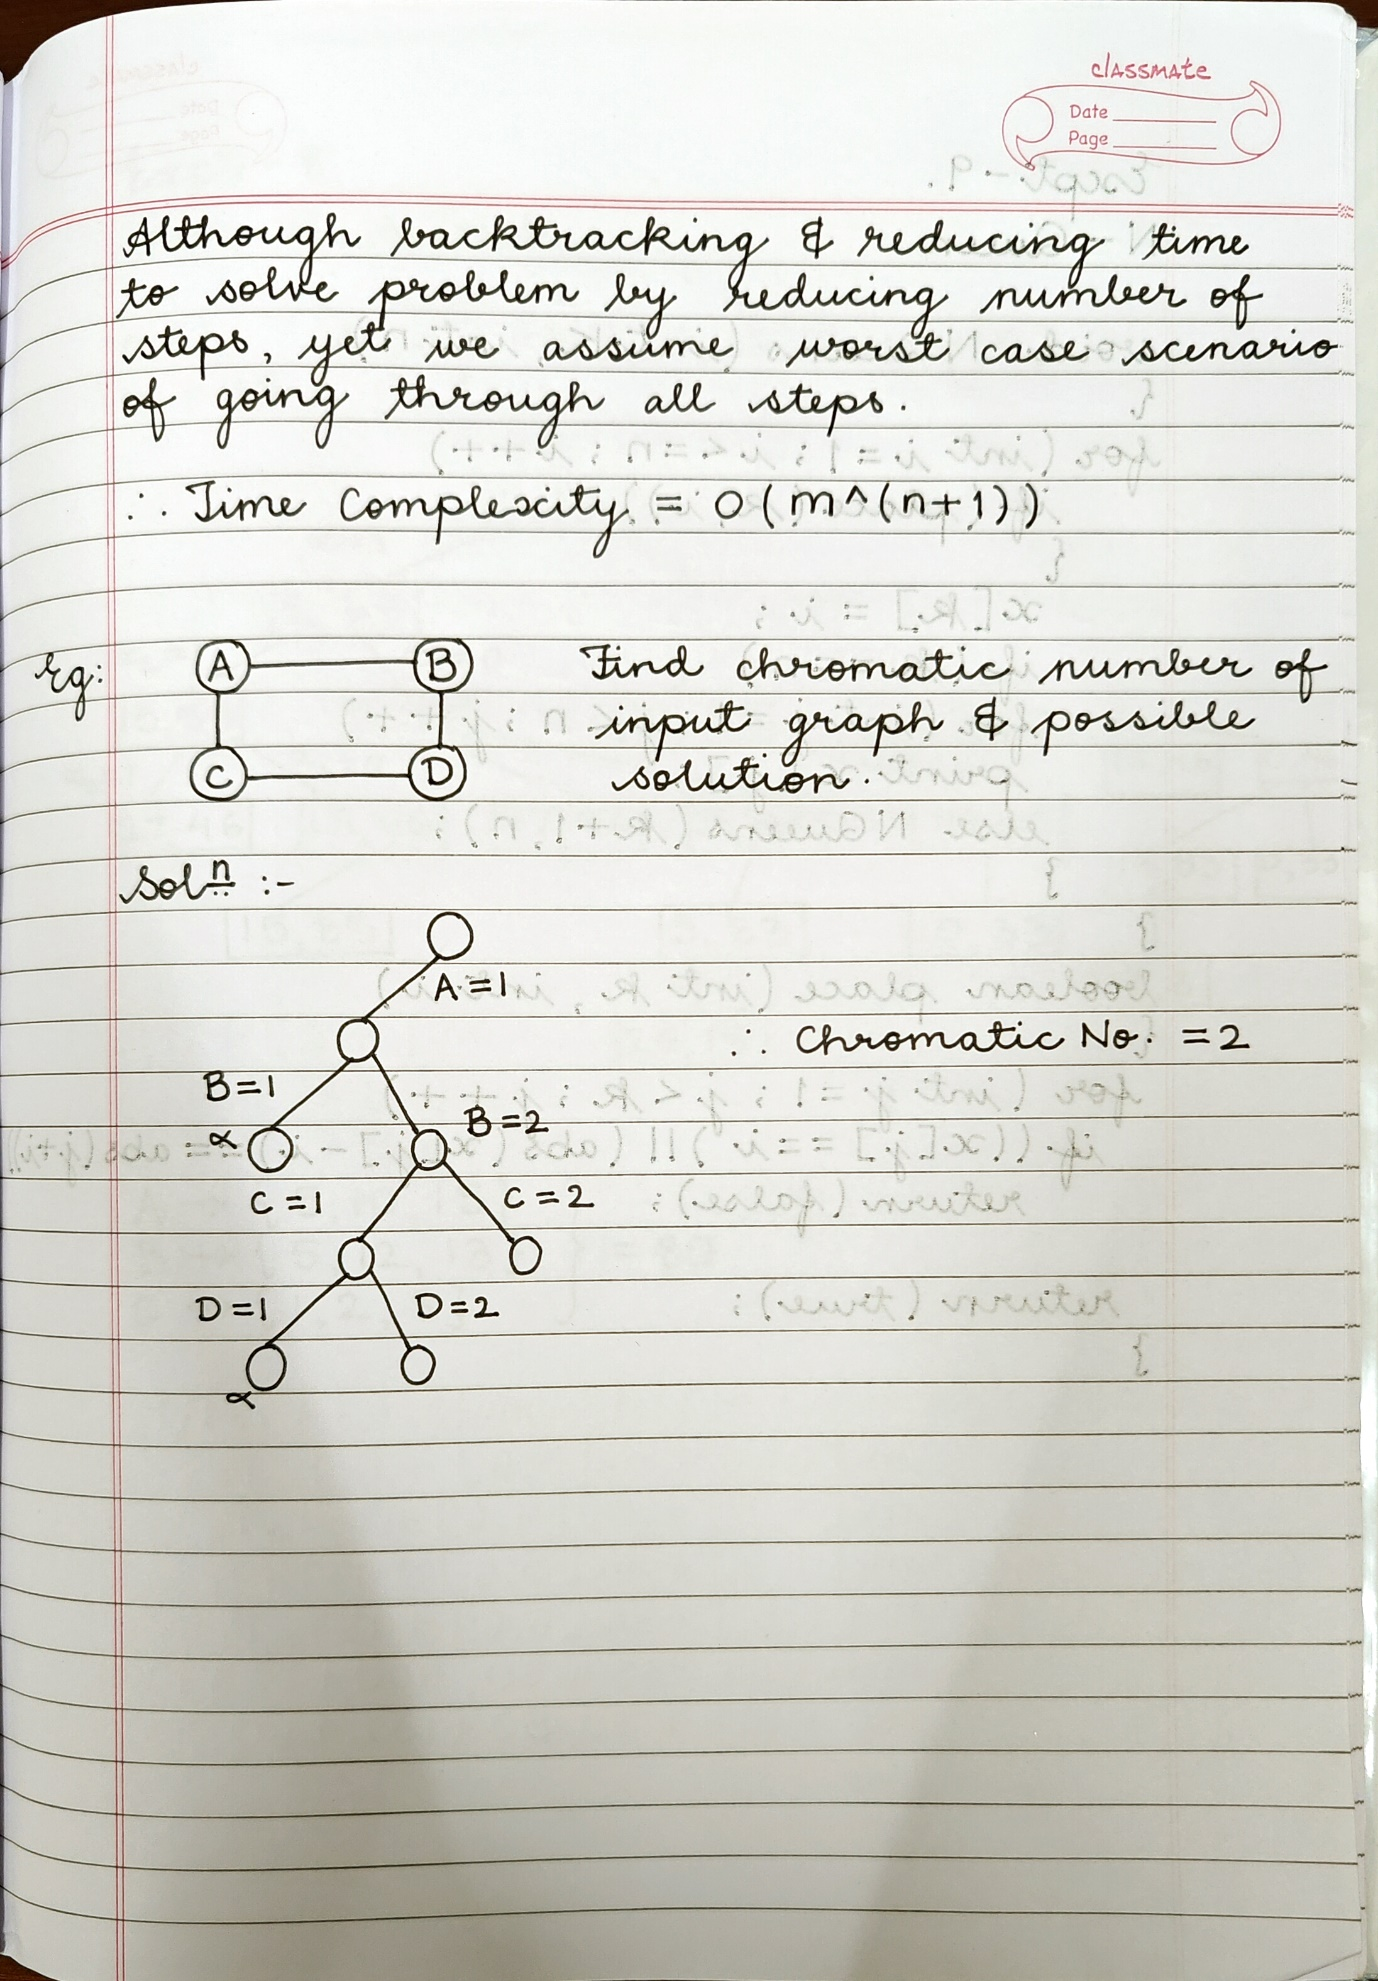 classmate
Date
Page
Although backtracking & reducing time
to solve problem by reducing number of
steps, yet we assume worst case scenario
of going through all steps.
∴ Time Complexity = O(m^(n+1))
Eg:
A B
C D
Find chromatic number of
input graph & possible
solution.
Solⁿ :-
A=1
∴ Chromatic No. = 2
B=1
B=2
α
C=1 C=2
D=1 D=2
α